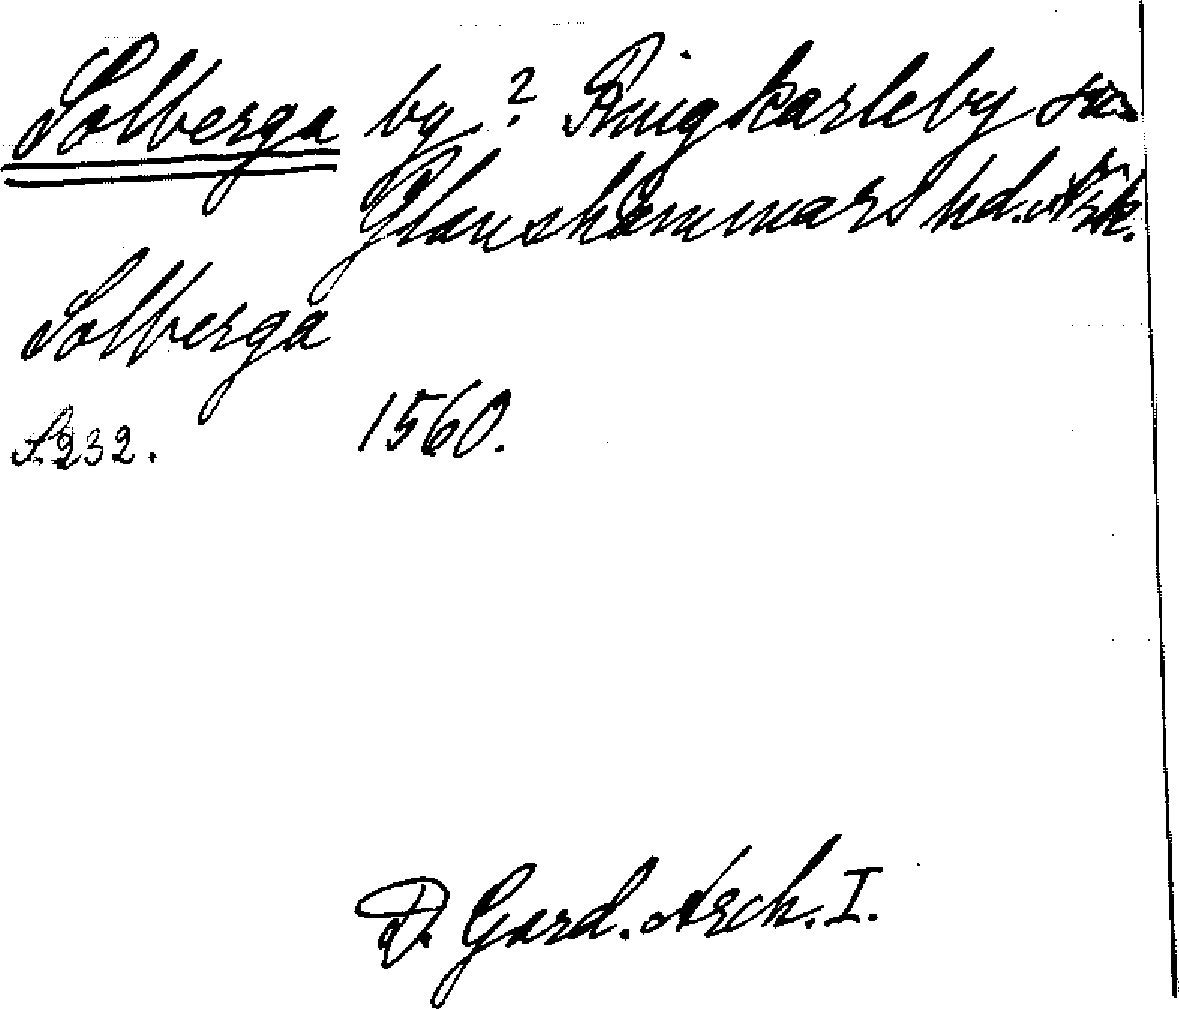 Solberga by? Ringkarleby sn
Glanshammars hd. Nrk.
Solberga
S. 232. 1560.
D. Gard. Arch. I.